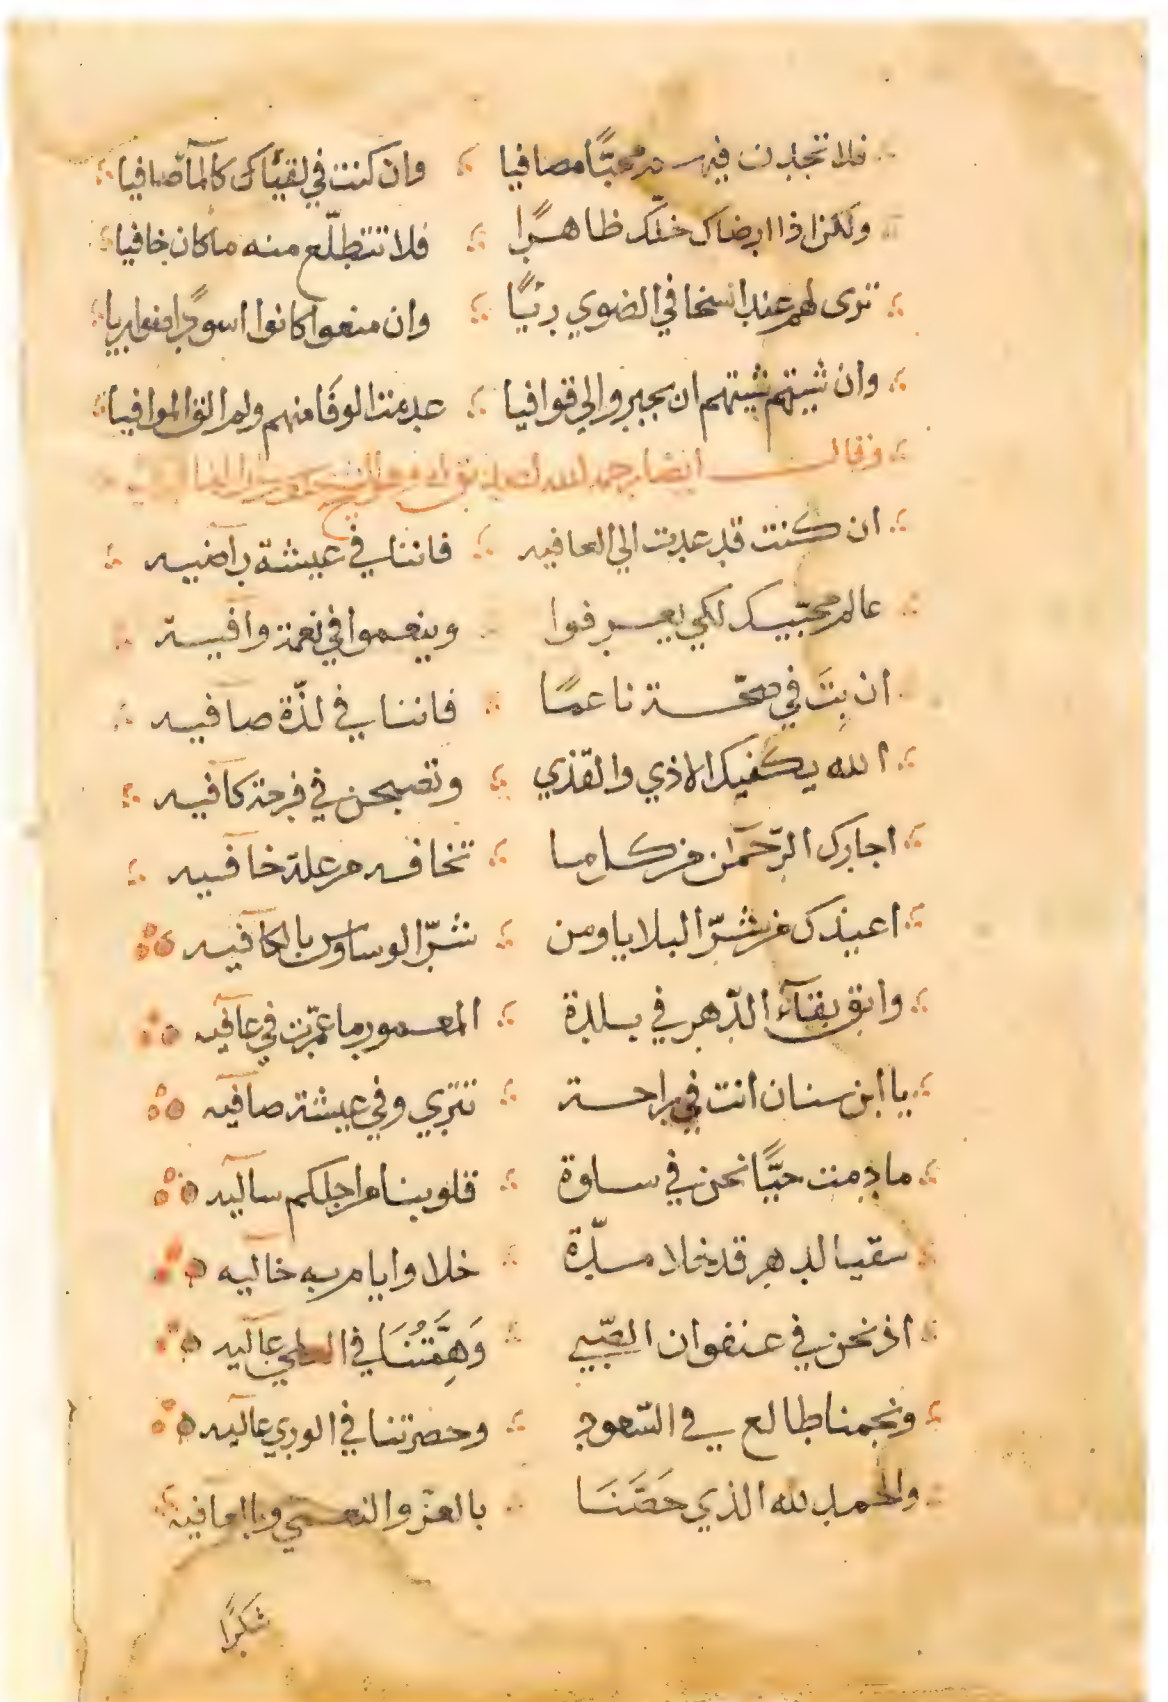 فلا تجدن فيهم محبًّا مصافيا وان كنت في لقيّاك كالمآ صافيا
ولكن اذا ارضاك خلّك ظاهرًا فلا تتطلّع منه ما كان خافيا
ترى لهم عند السخا في الضوي ريًّا وان منعوا كانوا اسودًا
وان شيتهم شيتهم ان يجيروا لي قوافيا عدمت الوفا منهم ولم الق الموافيا
وقال ايضا رحمه الله
ان كنت قد عدت الي العافيه فاننا في عيشة راضيه
عالم محبّيك لكي يعرفوا وينعموا في نعمة وافية
ان بتَ في صحّة ناعمًا فاننا في لذّة صافيه
الله يكفيك الاذي والقذي وتصبحن في فرحة كافيه
اجارك الرّحمٰن من كل ما تخافه من علة خافيه
اعيذك من شرّ البلايا ومن شرّ الوساوس بالكافيه
وابق بقآء الدّهر في بلدة المعمور ما عمّرت في عافيه
يا ابن سنان انت في راحة تتري وفي عيشة صافيه
ما دمت حيًّا نحن في سلوة قلوبنا من اجلكم ساليه
سقيا لدهر قد خلا مدّة خلا وايام به خاليه
اذ نحن في عنفوان الصّبي وَهِمَّتُنَا في العلي عاليه
ونجمنا طالع في السّعود وحضرتنا في الوري عاليه
والحمد لله الذي خصّنَا بالعز والنعمي وبالعافيه
شكرًا